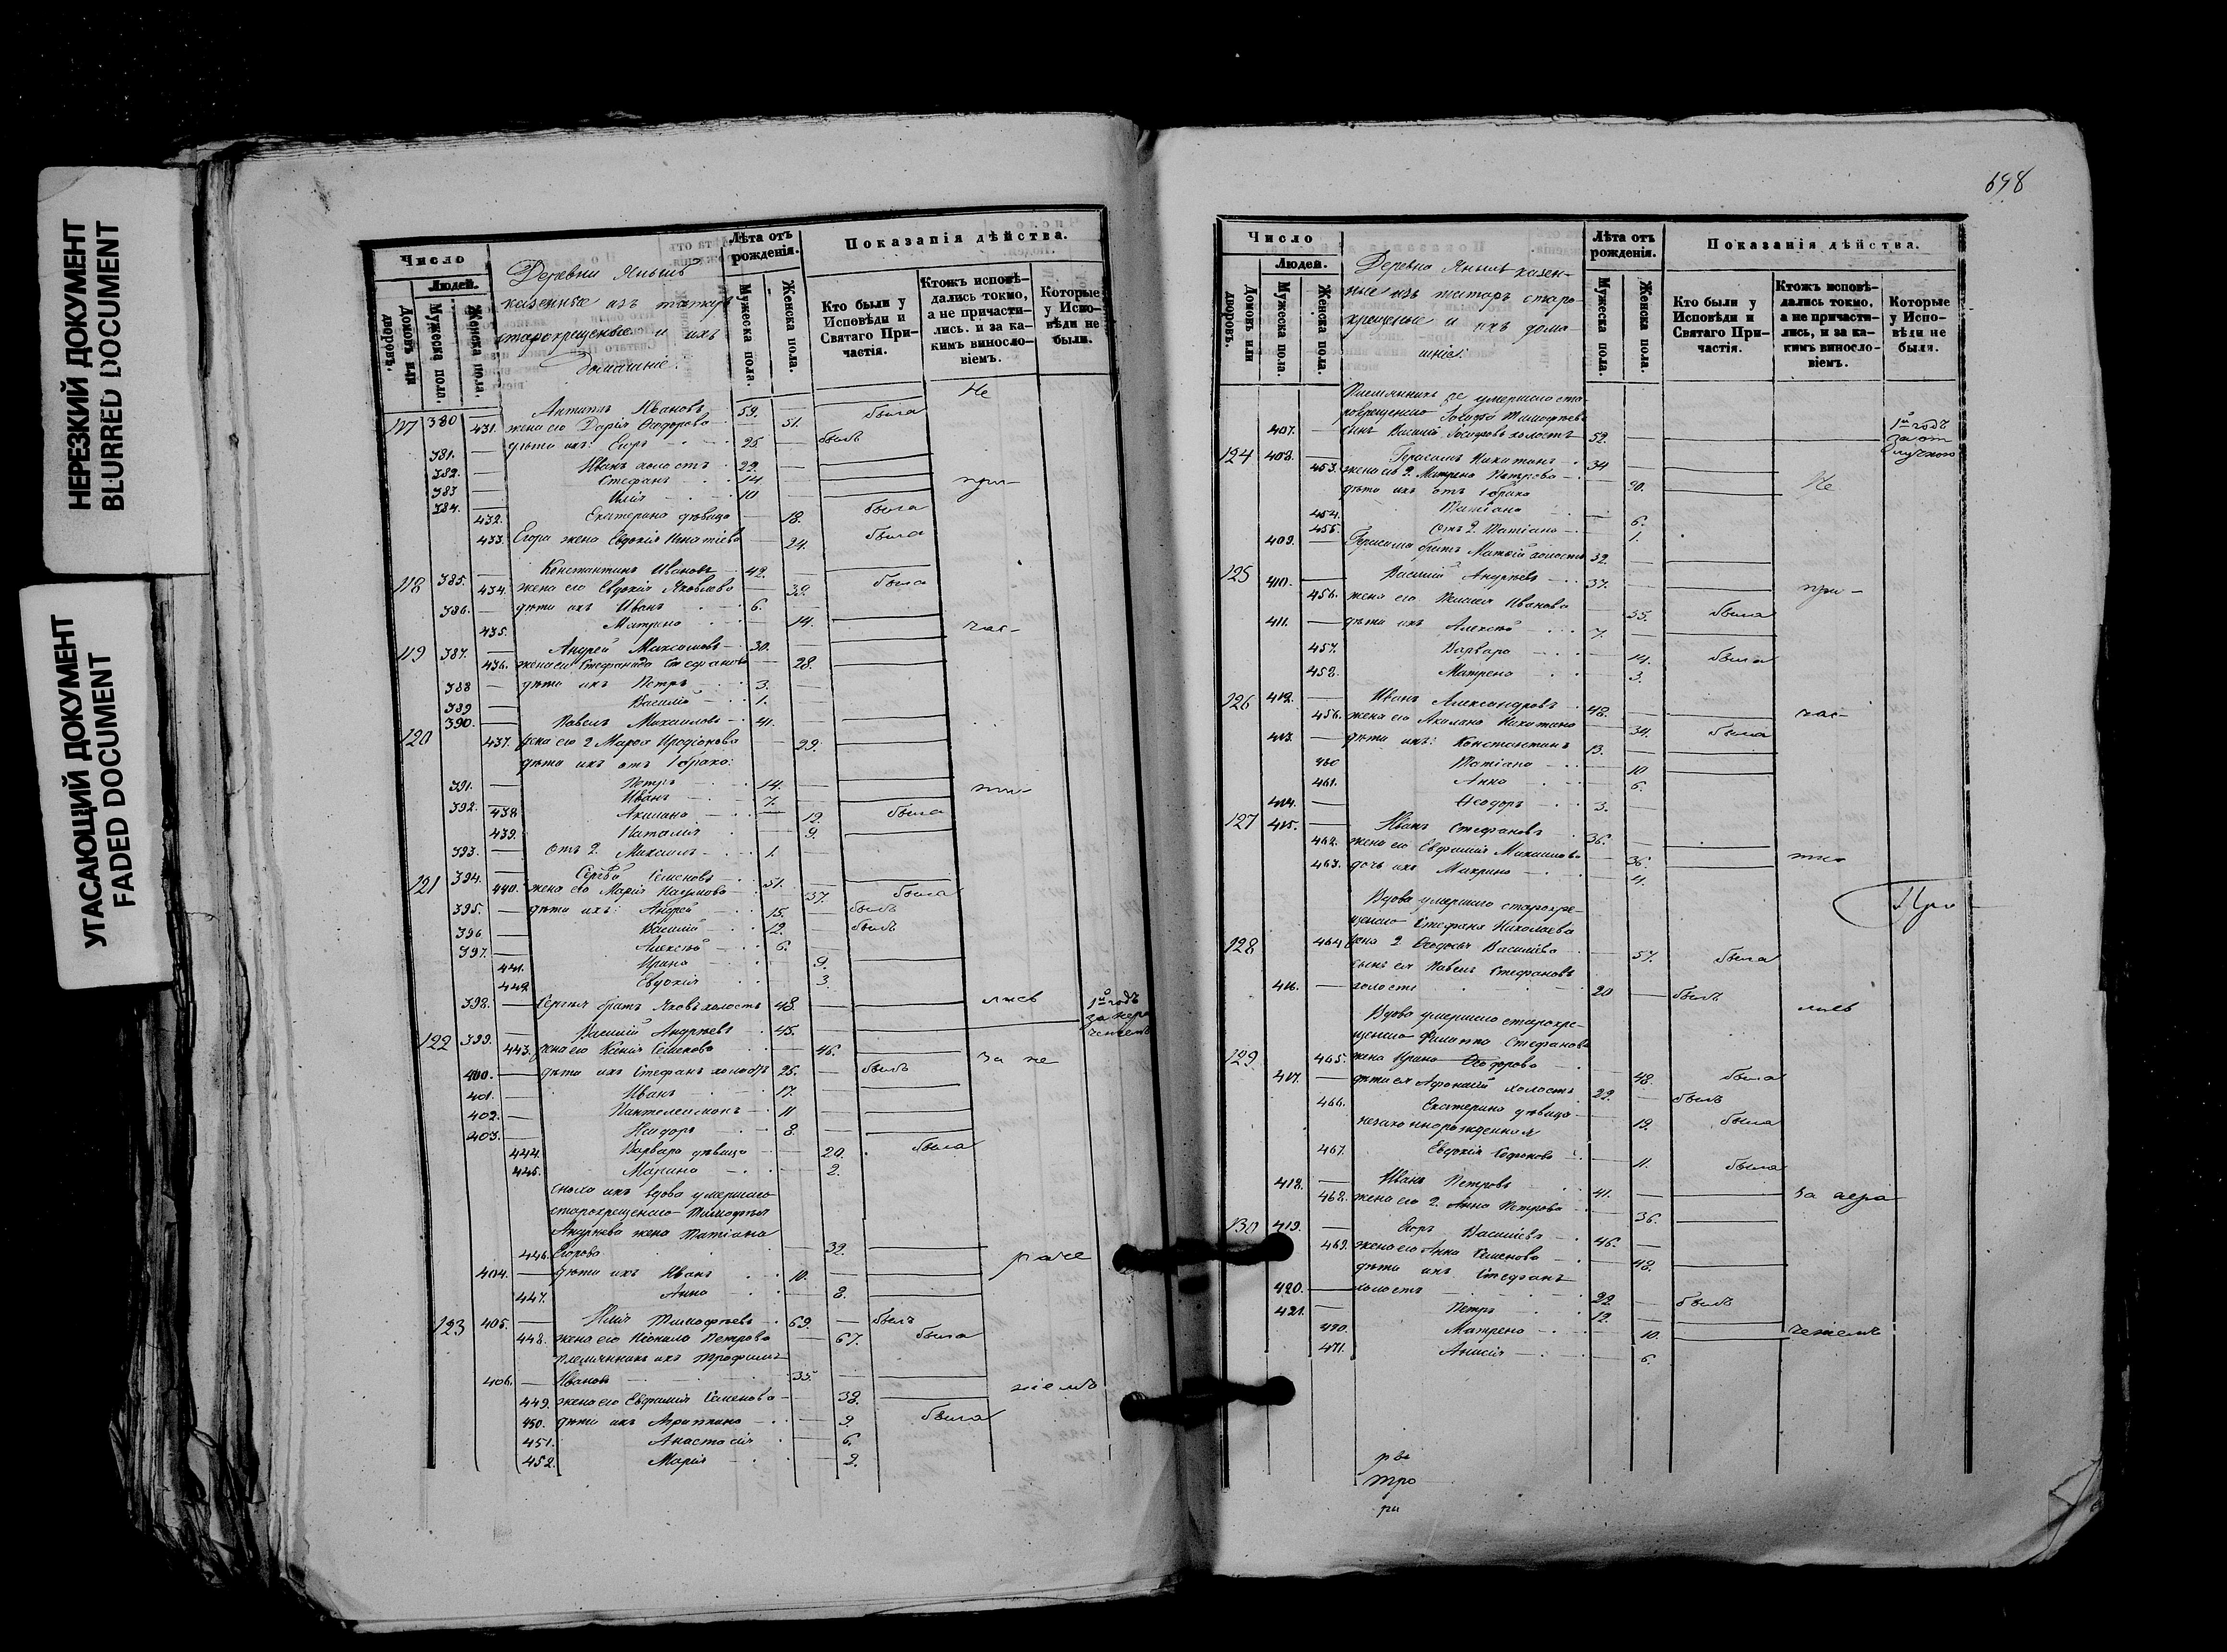 НЕРЕЗКИЙ ДОКУМЕНТ
BLURRED DOCUMENT
УГАСАЮЩИЙ ДОКУМЕНТ
FADED DOCUMENT
Число
Людей.
Домовъ или дворовъ.
Мужеска пола.
Женска пола.
Деревни Янылъ
казенные изъ татаръ
старокрещеные и ихъ
домашніе.
Лѣта отъ рожденія.
Мужеска пола.
Женска пола.
Показанія дѣйства.
Кто были у Исповѣди и Святаго Причастія.
Ктожъ исповѣдались токмо, а не причастились. и за какимъ винословіемъ.
Которые у Исповѣди не были.
117 380 Антипъ Ивановъ 59. Не
431. жена его Дарія Ѳеодорова 51. была
381. дѣти ихъ: Егоръ 25 былъ
382. Иванъ холостъ 22.
383 Стефанъ 14 при-
384. Илія 10
432. Екатерина дѣвица 18. была
433. Егора жена Евдокія Игнатіева 24. была
118 385. Константинъ Ивановъ 42.
434. жена его Евдокія Яковлева 39. была
386. дѣти ихъ Иванъ 6.
435. Матрена 14. час-
119 387. Андрей Максимовъ 30.
436. жена его Стефанида Стефанова 28.
388 дѣти ихъ Петръ 3.
389 Василій 1.
120 390. Павелъ Михаиловъ 41.
437. жена его 2 Марѳа Иродіонова 29.
дѣти ихъ отъ 1 брака:
391. Петръ 14. ти-
392. Иванъ 7.
438 Акилина 12. была
439. Наталія 9.
393. Отъ 2. Михаилъ 1.
121 394. Сергѣй Семеновъ 51.
440. жена его Марія Наумова 37. была
395. дѣти ихъ: Андрей 15. былъ
396 Василій 12. былъ
397. Алексѣй 6.
441. Ирина 9.
442 Евдокія 3.
398. Сергѣя братъ Яковъ холостъ 48. лись
122 399. Василій Андреевъ 45. 1й годъ за нераченіемъ
443. жена его Ксенія Семенова 46. за не
400. дѣти ихъ Стефанъ холостъ 25. былъ
401. Иванъ 17.
402. Пантелеимонъ 11
403. Исидоръ 8.
444. Варвара дѣвица 20. была
445. Марина 2.
сноха ихъ вдова умершаго
старокрещенаго Тимоѳея
Андреева жена Татіана
446. Егорова 32. раче
404. дѣти ихъ Иванъ 10.
447. Анна 8.
123 405. Илія Тимоѳеевъ 69. былъ
448. жена его Неонила Петрова 67. была
племянникъ ихъ Трофимъ
406. Ивановъ 35.
449. жена его Евфимія Семенова 38. ніемъ
450. дѣти ихъ Агриппина 9. была
451. Анастасія 6.
452. Марія 2.
698
Число
Людей.
Домовъ или дворовъ.
Мужеска пола.
Женска пола.
Деревня Янылъ казен-
ные изъ татаръ старо-
крещеные и ихъ дома-
шніе.
Лѣта отъ рожденія.
Мужеска пола.
Женска пола.
Показанія дѣйства.
Кто были у Исповѣди и Святаго Причастія.
Ктожъ исповѣдались токмо, а не причастились, и за какимъ винословіемъ.
Которые у Исповѣди не были.
умершаго ста-
Тимоѳеева
407. сынъ Василій Іосифовъ холостъ 52. 1й годъ за от
124 408. Герасимъ Никитинъ 34
453. жена его 2. Матрена Петрова 20. Не
дѣти ихъ отъ 1 брака
454. Татіана 6.
455. Отъ 2. Татіана 1.
409. Герасима братъ Матвѣй холостъ 32
125 410. Василій Андреевъ 37.
456. жена его Иванова 35. была при-
411. дѣти ихъ Алексѣй 7.
457. Варвара 14. была
458. Матрена 3.
126 412. Иванъ Александровъ 48. час-
456. жена его Акилина Никитина 34. была
413. дѣти ихъ: Константинъ 13.
460 Татіана 10
461. Анна 6.
414. Ѳеодоръ 3.
127 415. Иванъ Стефановъ 36.
462. жена его Евфимія Михаилова 36. ти
463. дочь ихъ Макрина 4.
Вдова умершаго старокре-
щенаго Стефана Николаева
128 464 жена 2 Ѳеодосія Василіева 57. была
сынъ ея Павелъ Стефановъ
416. холостъ 20 былъ
Вдова умершаго старокре- лись
щенаго Филиппа Стефанова
129 465. жена Ирина Ѳеодорова 48. была
417. дѣти ея Аѳанасій холостъ 22. былъ
466. Екатерина дѣвица 19. была
незаконнорожденная
467. Евдокія 11. была
418. Иванъ Петровъ 41. за нера
468. жена его 2. Анна Петрова 36.
130 419. Егоръ Василіевъ 46.
469. жена его Анна Семенова 48.
дѣти ихъ Стефанъ
420. холостъ 22. былъ
421. Петръ 12.
470. Матрена 10. ченіемъ
471. Анисія 6.
тро